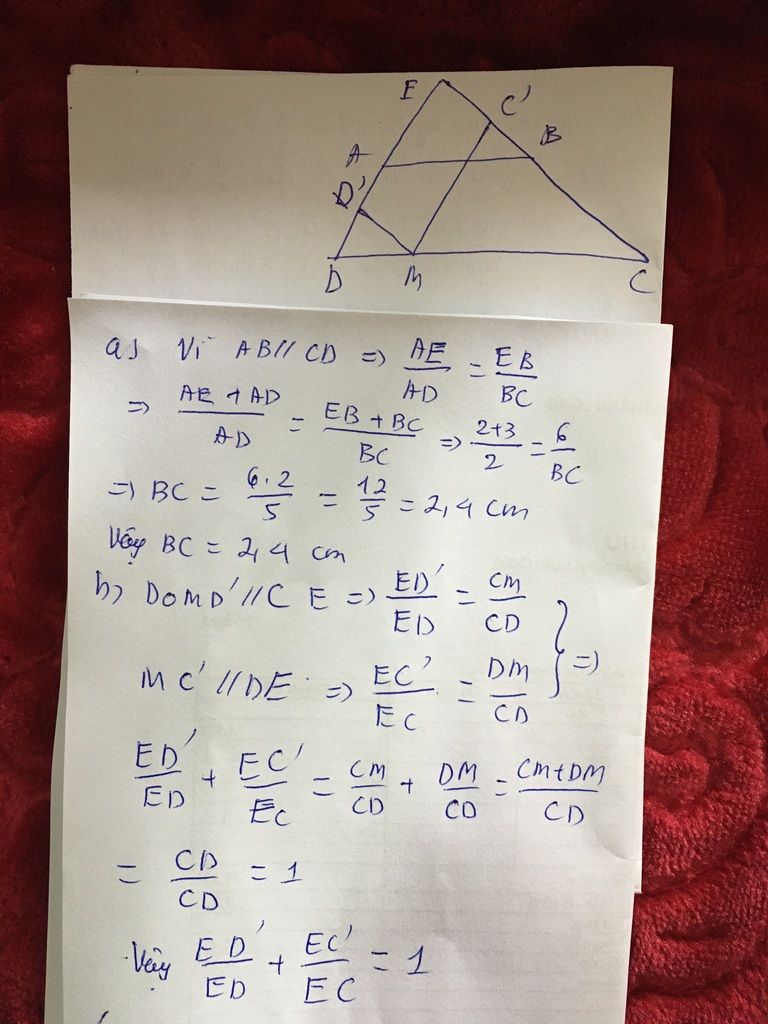 E
C'
A
B
D'
D M C
a) Vì AB // CD => AE/AD = EB/BC
=> (AE + AD)/AD = (EB + BC)/BC => (2+3)/2 = 6/BC
=> BC = (6.2)/5 = 12/5 = 2,4 cm
Vậy BC = 2,4 cm
b) Do MD' // CE => ED'/ED = CM/CD
MC' // DE => EC'/EC = DM/CD } =>
ED'/ED + EC'/EC = CM/CD + DM/CD = (CM+DM)/CD
= CD/CD = 1
Vậy ED'/ED + EC'/EC = 1